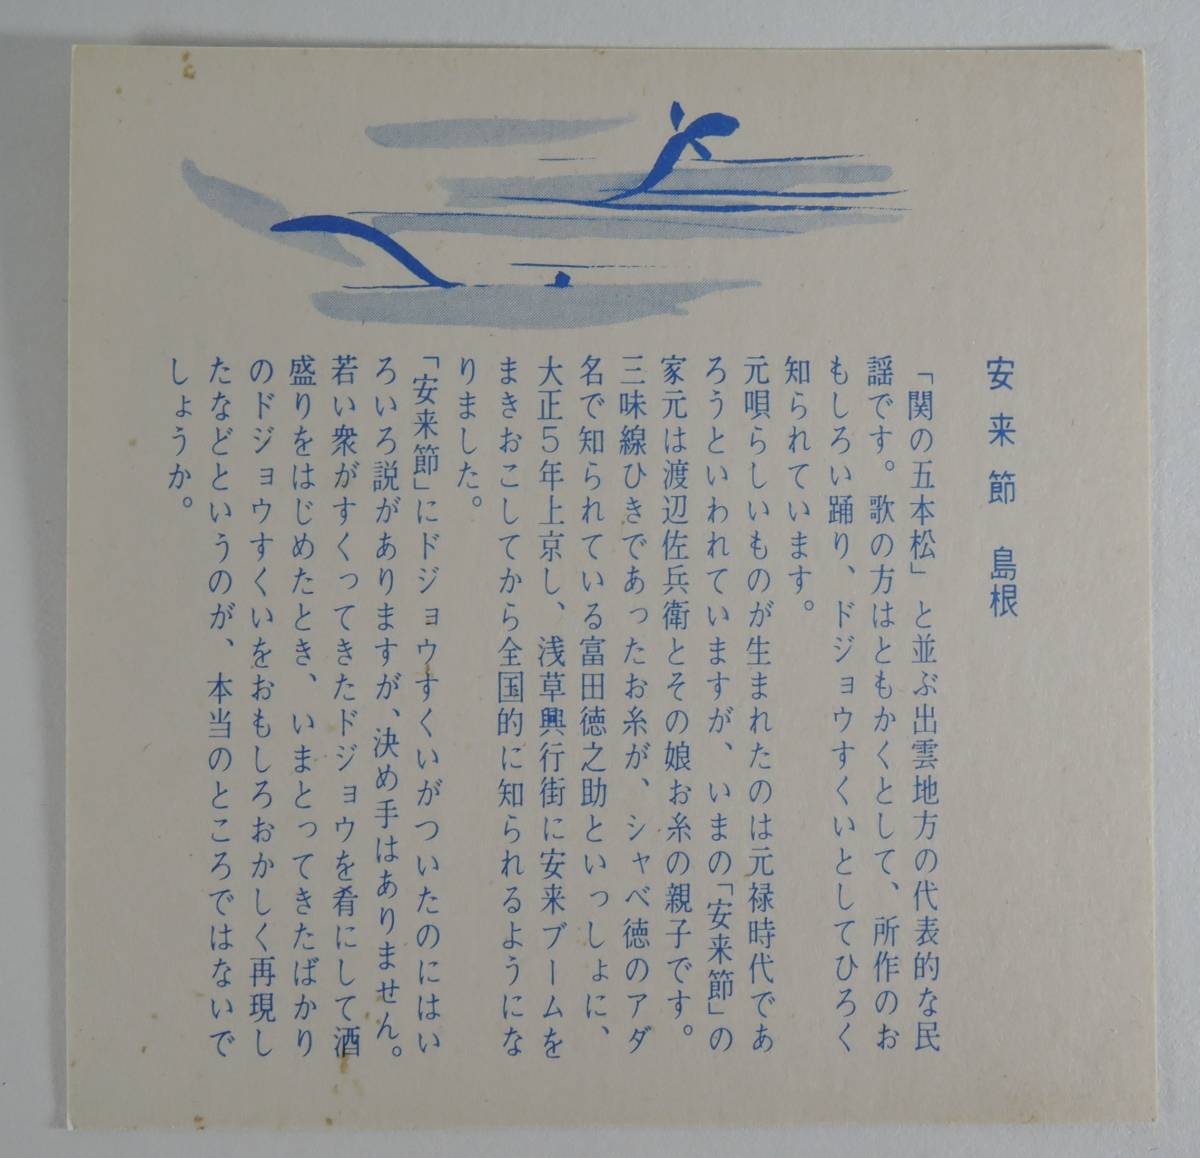 安来節 島根
「関の五本松」と並ぶ出雲地方の代表的な民
謡です。歌の方はともかくとして、所作のお
もしろい踊り、ドジョウすくいとしてひろく
知られています。
元唄らしいものが生まれたのは元禄時代であ
ろうといわれていますが、いまの「安来節」の
家元は渡辺佐兵衛とその娘お糸の親子です。
三味線ひきであったお糸が、シャベ徳のアダ
名で知られている富田徳之助といっしょに、
大正5年上京し、浅草興行街に安来ブームを
まきおこしてから全国的に知られるようにな
りました。
「安来節」にドジョウすくいがついたのにはい
ろいろ説がありますが、決め手はありません。
若い衆がすくってきたドジョウを肴にして酒
盛りをはじめたとき、いまとってきたばかり
のドジョウすくいをおもしろおかしく再現し
たなどというのが、本当のところではないで
しょうか。